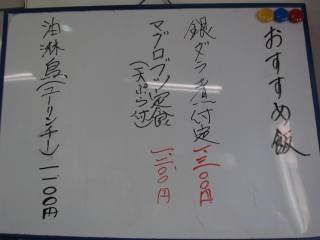 おすすめ飯
銀ダラ煮付定 1,300円
マグロブツ定食
(天ぷら付) 1,100円
油淋鳥(ユーリンチー) 1,100円